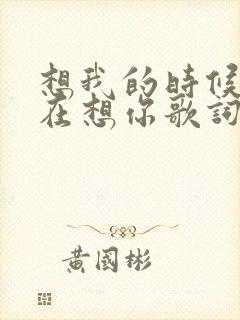 想我的時候
在想你歌詞
黃國彬